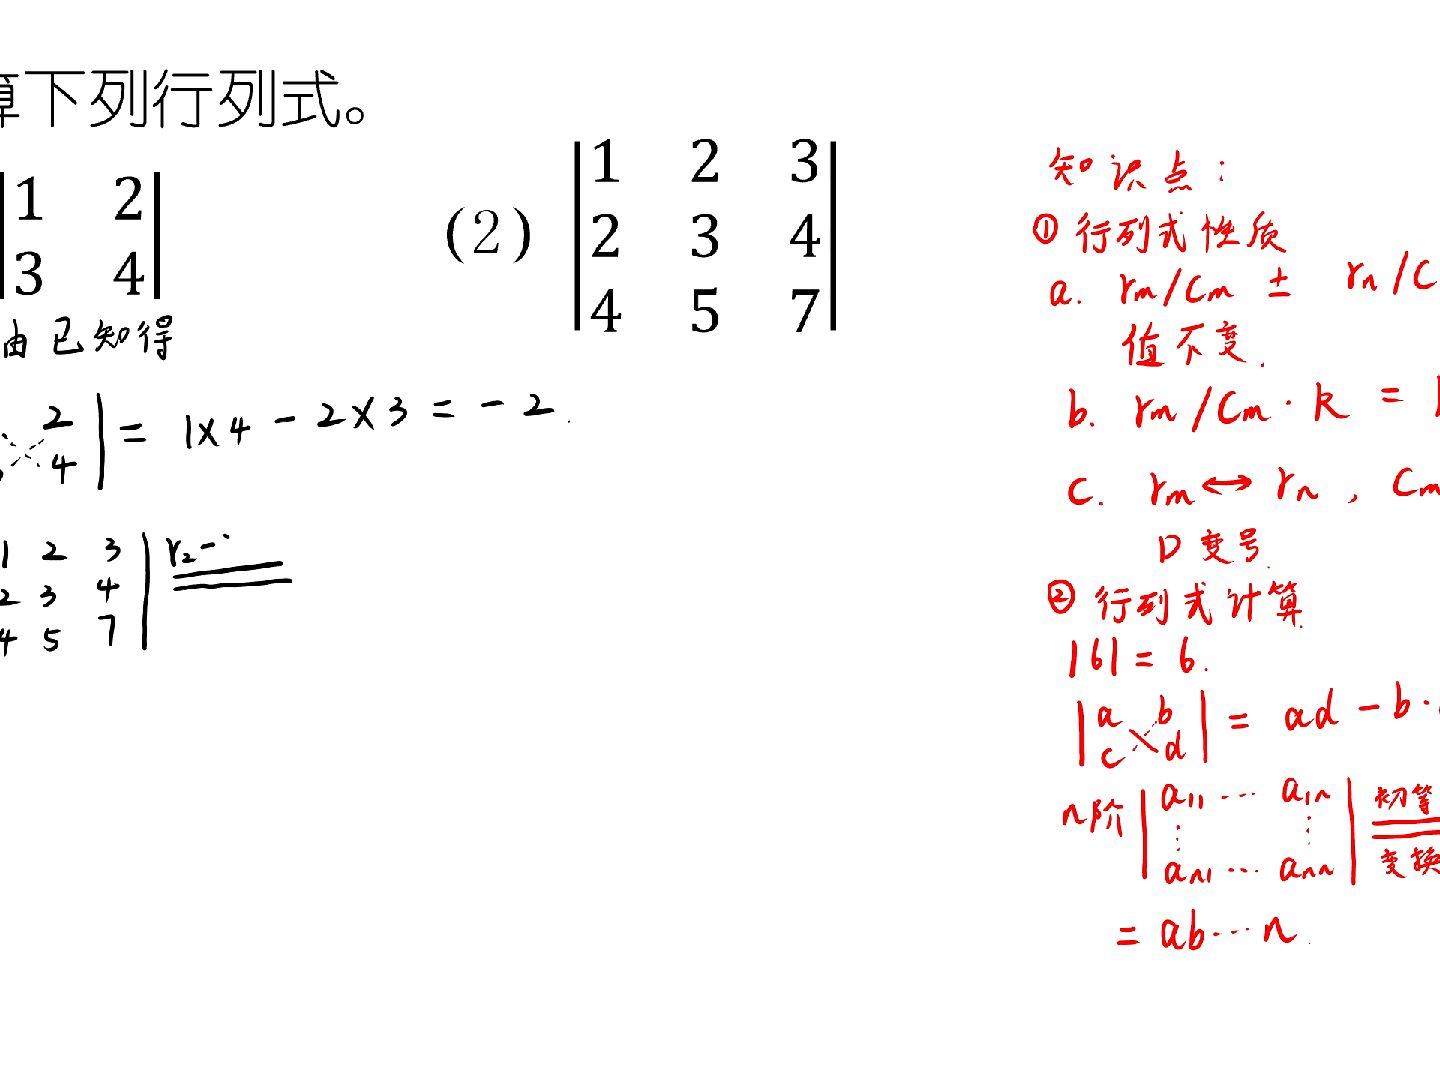 算下列行列式。
|1 2|
|3 4|
(2) |1 2 3|
|2 3 4|
|4 5 7|
由已知得
2| = 1×4 - 2×3 = -2.
4|
1 2 3| r₂-
2 3 4|
4 5 7|
知识点:
① 行列式性质
a. rm/cm ± rn/c
值不变.
b. rm/cm·k =
c. rm↔rn, cm
D变号.
② 行列式计算
|6| = 6.
|a b| = ad - b·
|c d|
n阶 |a₁₁ ··· a₁n| 初等
⋮ ⋮
|an₁ ··· ann| 变换
= ab···n.